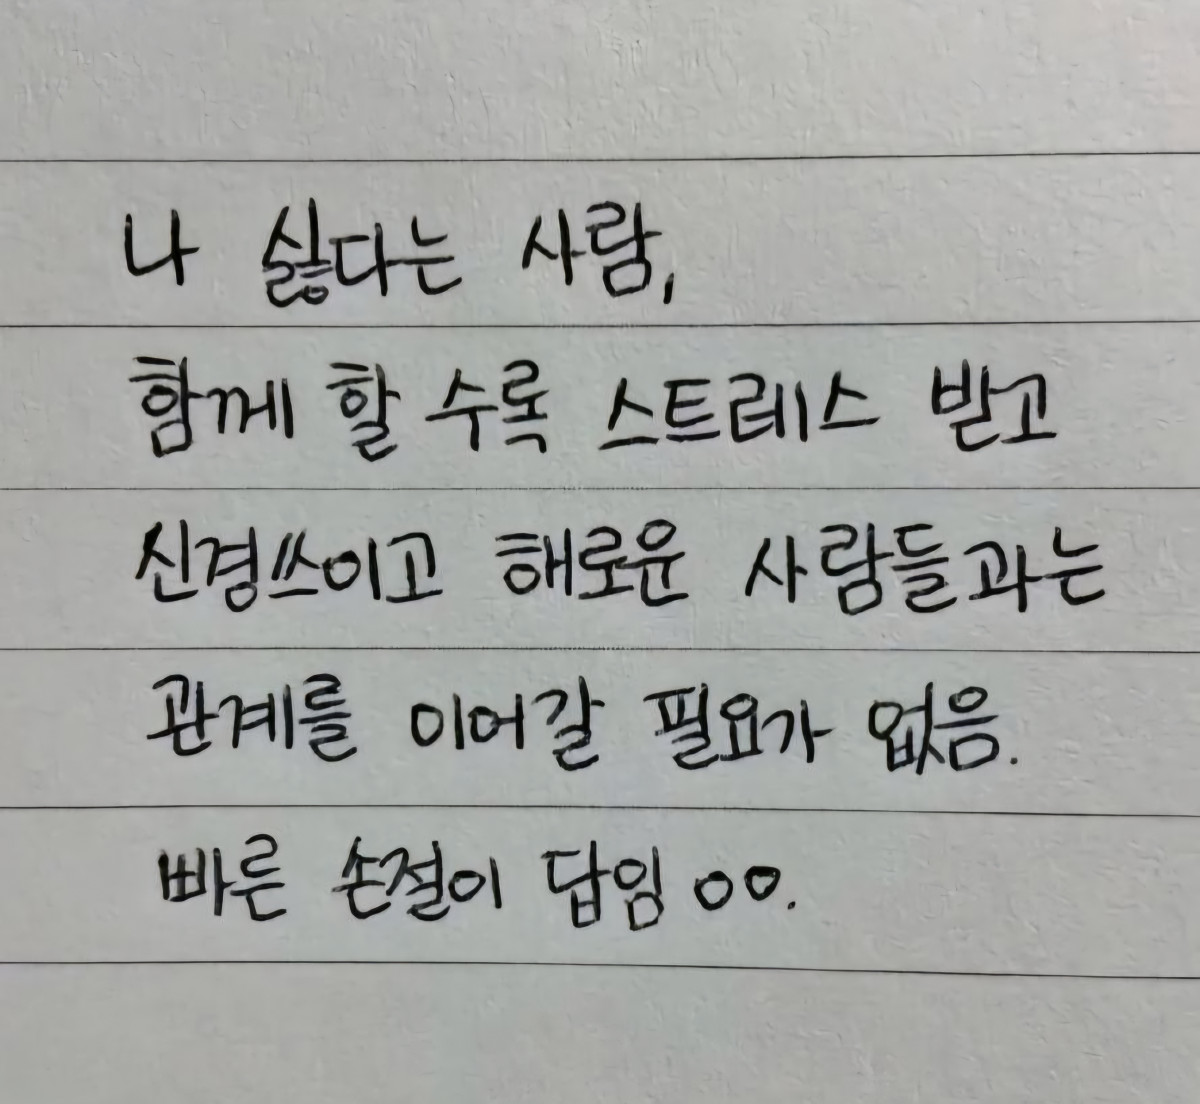 나 싫다는 사람,
함께 할 수록 스트레스 받고
신경쓰이고 해로운 사람들과는
관계를 이어갈 필요가 없음.
빠른 손절이 답임 ㅇㅇ.